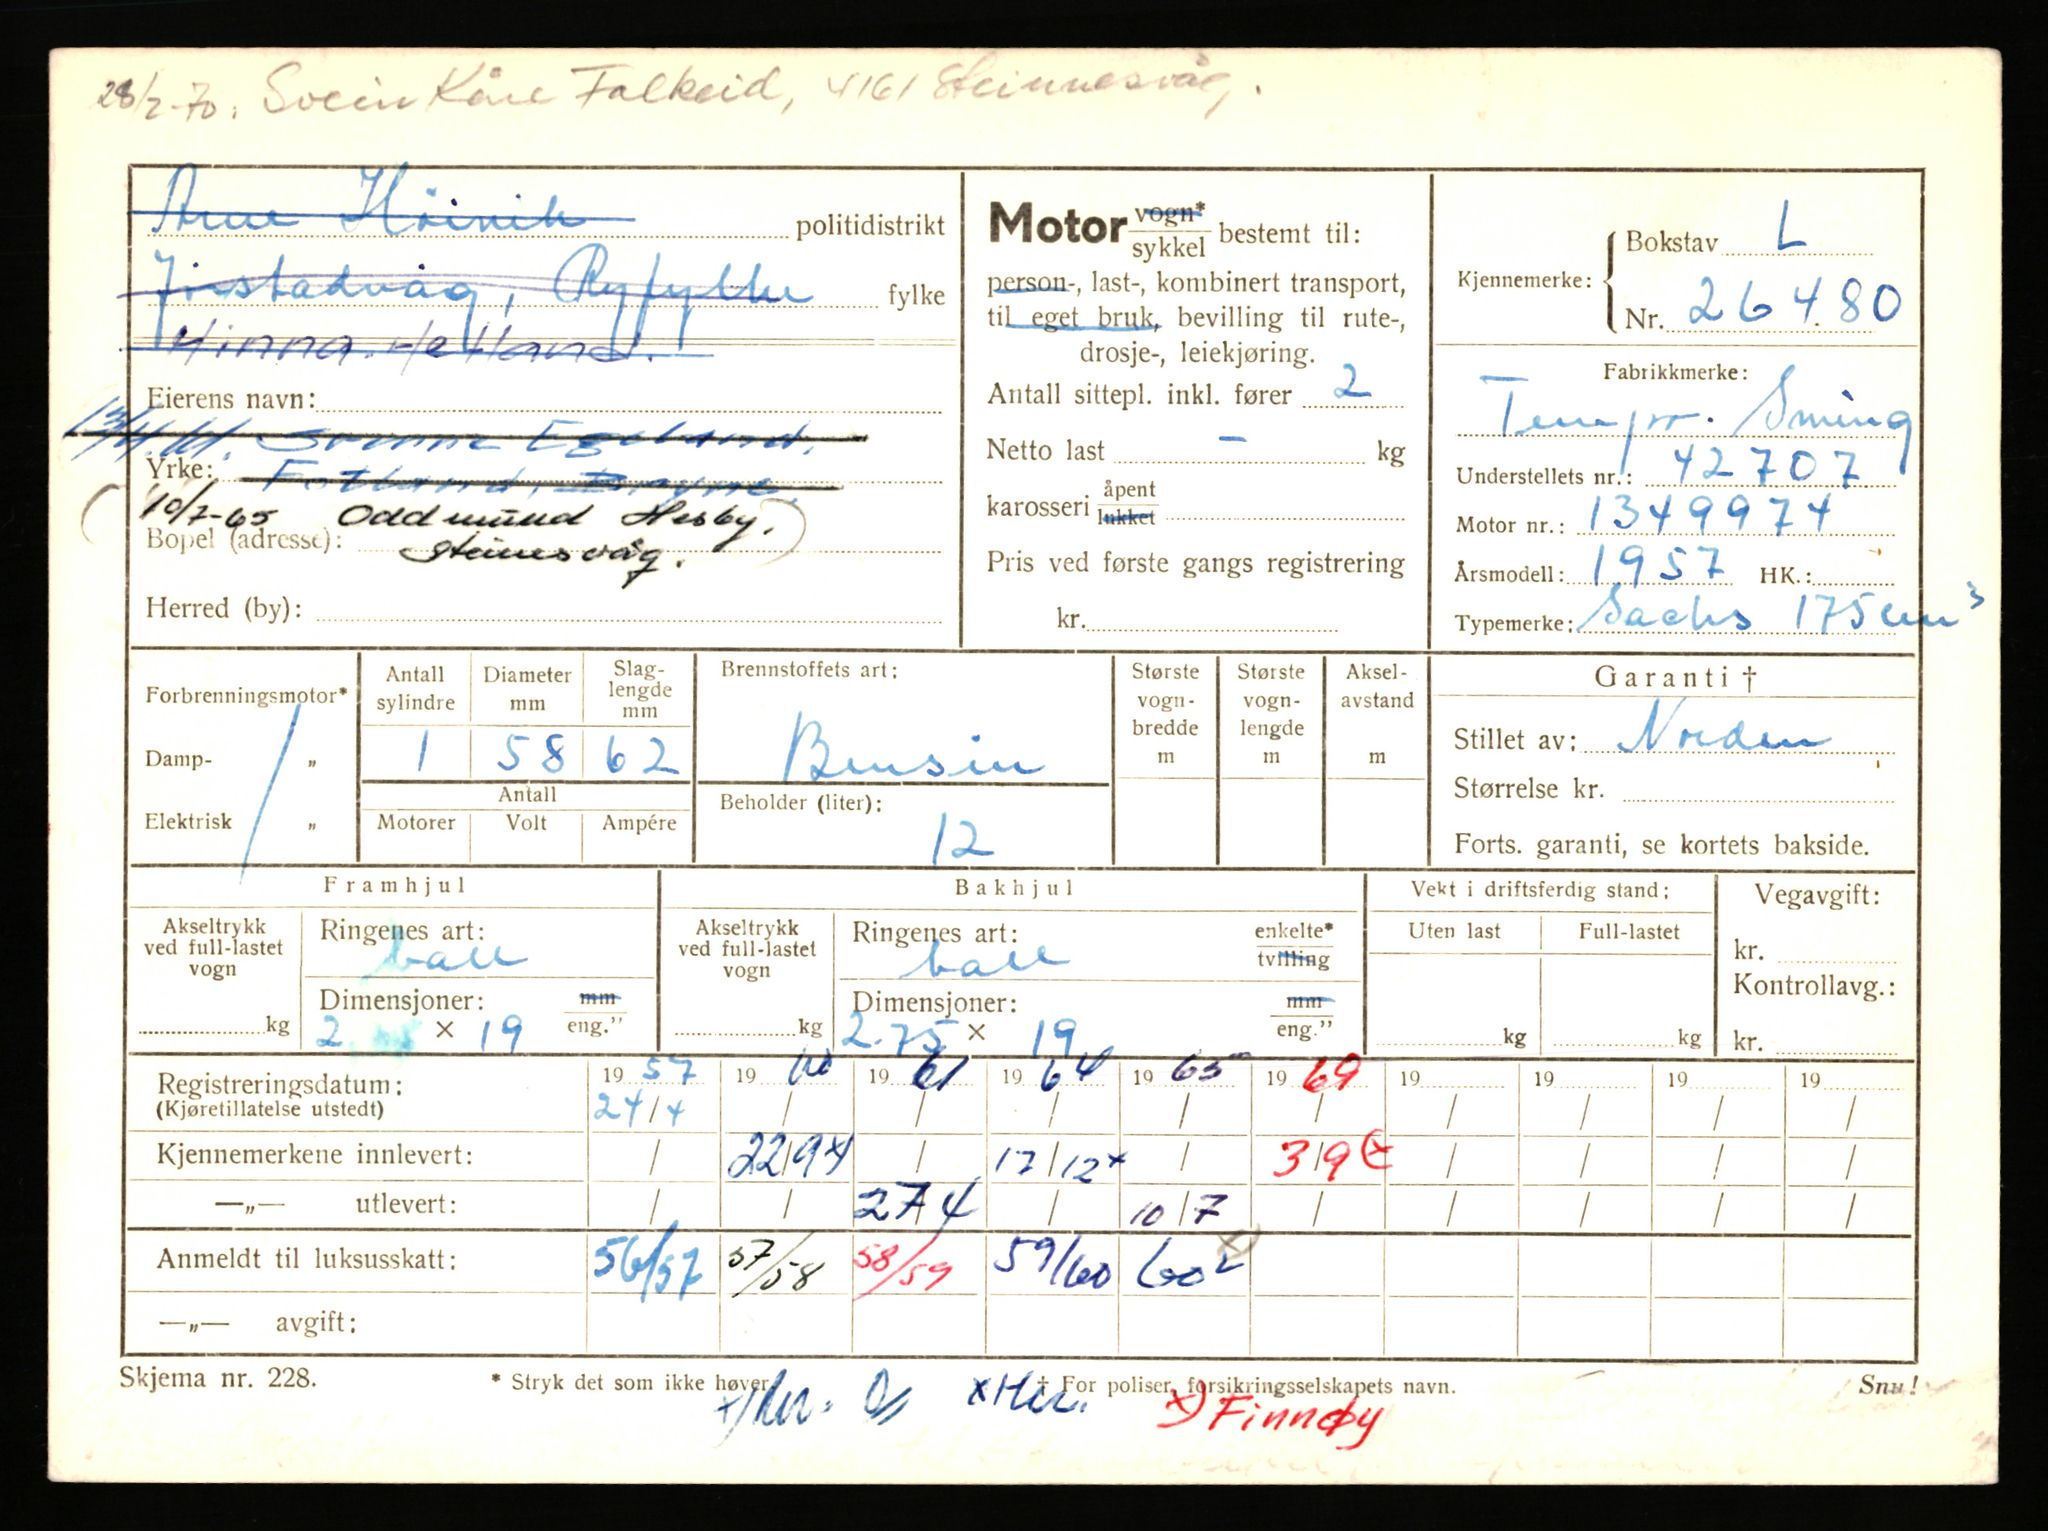 28/2-70. Svein Kåre Falkeid, 4161 Steinnesvåg.
Arne Høivik politidistrikt
Jøstadvåg, Ryfylke fylke
Hinna. Hetland.
Eierens navn:
13/4.61. Egeland.
Yrke: Fotland, Bryne.
10/7-65 Oddmund Hesby.
Bopel (adresse): Steinesvåg.
Herred (by):
Motor vogn* / sykkel bestemt til:
person-, last-, kombinert transport,
til eget bruk, bevilling til rute-,
drosje-, leiekjøring.
Antall sittepl. inkl. fører 2
Netto last - kg
karosseri åpent / lukket
Pris ved første gangs registrering
kr.
Kjennemerke: Bokstav L
Nr. 26480
Fabrikkmerke:
Tempo. Swing
Understellets nr.: 42707
Motor nr.: 1349974
Årsmodell: 1957 HK.:
Typemerke: Sachs 175 cm³
Forbrenningsmotor*
Damp- „
Elektrisk „
Antall sylindre 1
Diameter mm 58
Slag-lengde mm 62
Antall
Motorer Volt Ampére
Brennstoffets art:
Bensin
Beholder (liter):
12
Største vogn-bredde m
Største vogn-lengde m
Aksel-avstand m
Garanti †
Stillet av: Norden
Størrelse kr.
Forts. garanti, se kortets bakside.
Framhjul
Akseltrykk ved full-lastet vogn kg
Ringenes art: ball
Dimensjoner: mm / eng."
2 × 19
Bakhjul
Akseltrykk ved full-lastet vogn kg
Ringenes art: ball enkelte* / tvilling
Dimensjoner: mm / eng."
2.75 × 19
Vekt i driftsferdig stand:
Uten last Full-lastet
kg kg
Vegavgift:
kr.
Kontrollavg.:
kr.
Registreringsdatum: 19 57 19 60 19 61 19 64 19 65 19 69 19 19 19 19
(Kjøretillatelse utstedt) 24/4 / / / / / / / / /
Kjennemerkene innlevert: / 22/9 x / 17/12 x / 3/9 x / / / /
—„— utlevert: / / 27/4 / 10/7 / / / / /
Anmeldt til luksusskatt: 56/57 57/58 58/59 59/60 60 2 x
—„— avgift:
Skjema nr. 228. * Stryk det som ikke høver. † For poliser, forsikringsselskapets navn. Snu!
x) Finnøy